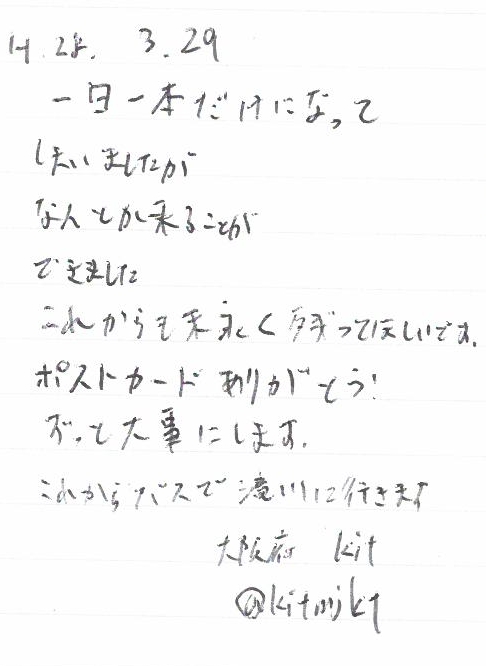 H.28. 3.29
一日一本だけになって
しまいましたが
なんとか来ることが
できました
これからも末永く残ってほしいです。
ポストカードありがとう!
ずっと大事にします。
これからバスで滝川に行きます
大阪府 kit